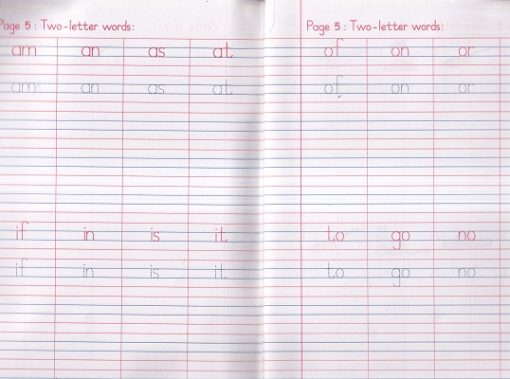 Page 5 : Two-letter words:
am an as at
am an as at
if in is it
if in is it
Page 5 : Two-letter words:
of on or
of on or
to go no
to go no